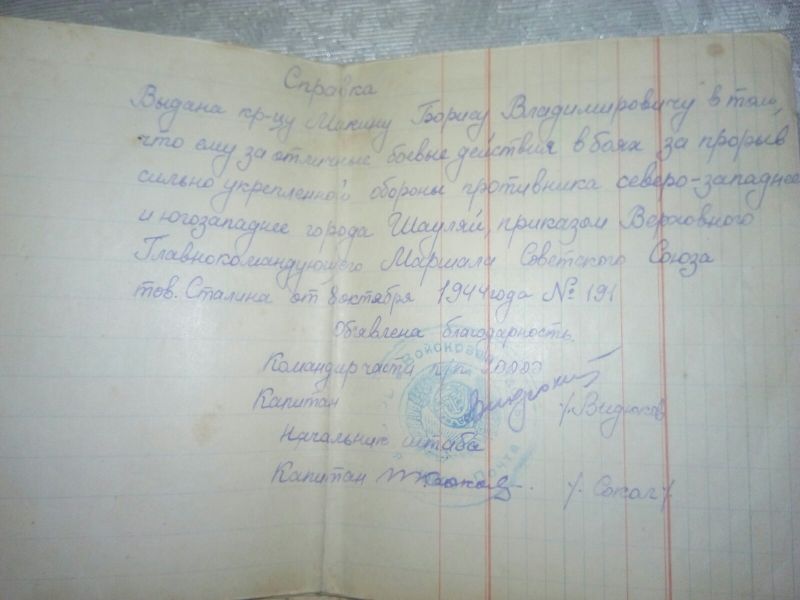 Справка
Выдана кр-цу Микину Борису Владимировичу в том,
что ему за отличные боевые действия в боях за прорыв
сильно укрепленной обороны противника северо-западнее
и югозападнее города Шауляй, приказом Верховного
Главнокомандующего Маршала Советского Союза
тов. Сталина от 8 октября 1944 года № 191
Объявлена благодарность.
Командир части п/п
Капитан /Видюков
Начальник штаба
Капитан /Сокол/
Войсковая
Почта